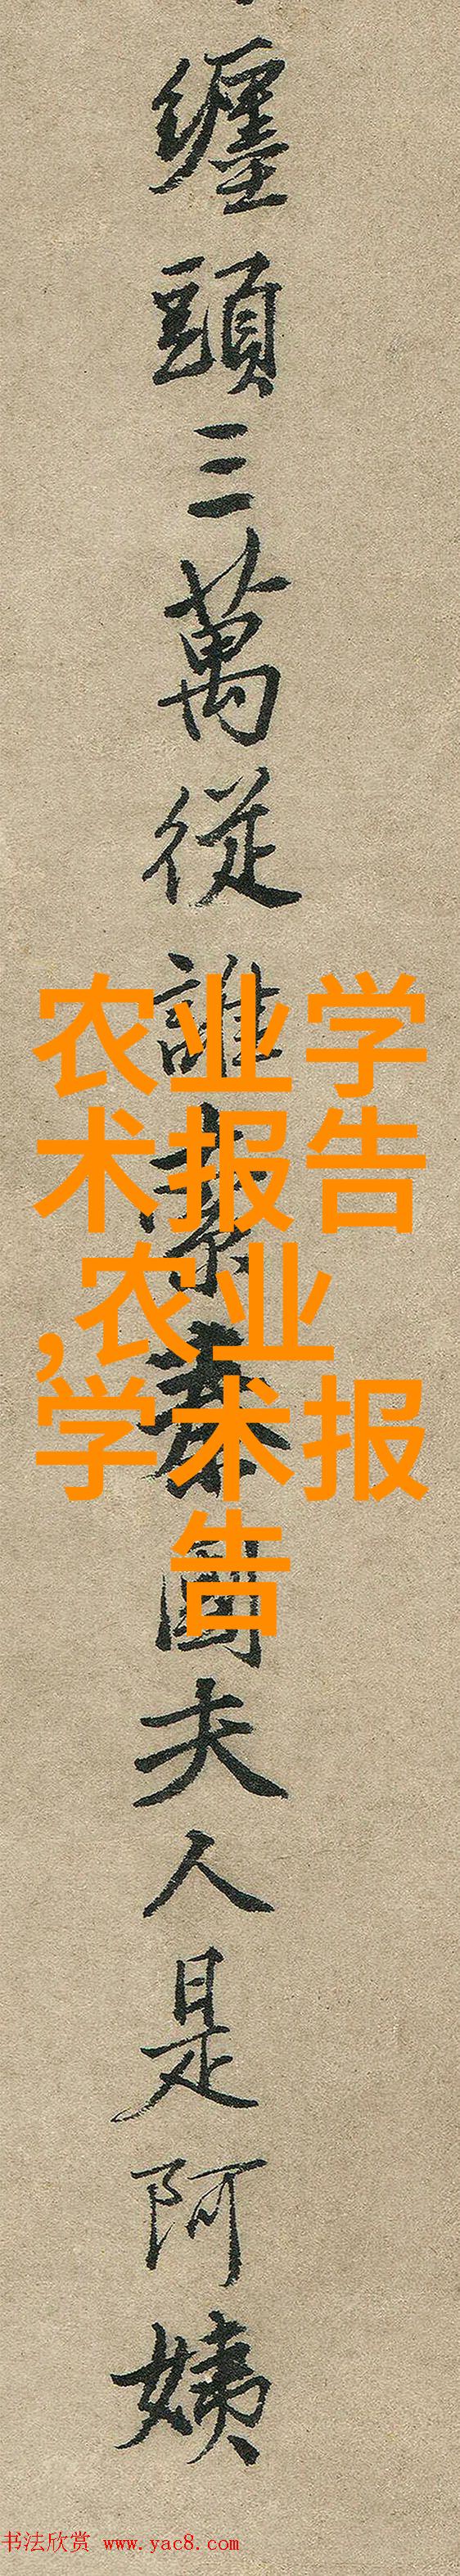 纏頭三萬從誰索秦國夫人是阿姨
农业学
术报告
,农业
学术报
告
书法欣赏 www.yac8.com